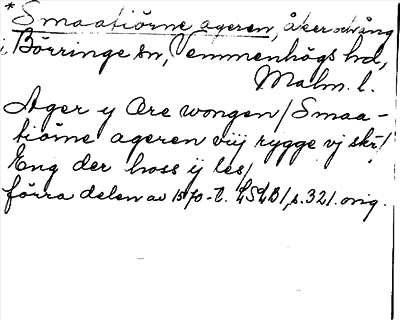 *Smaatiörne ageren, åker och äng
i Börringe sn, Vemmenhögs hd,
Malm. l.
Ager y Ore wongen / Smaa-
tiörne ageren viij rygge vj skr /
Eng der hoss ij les /
förra delen av 1570-t. LSLB1, s. 321. orig.